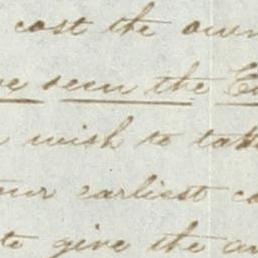 cost the own
seen the
wish to tak
our earliest co
to give the an